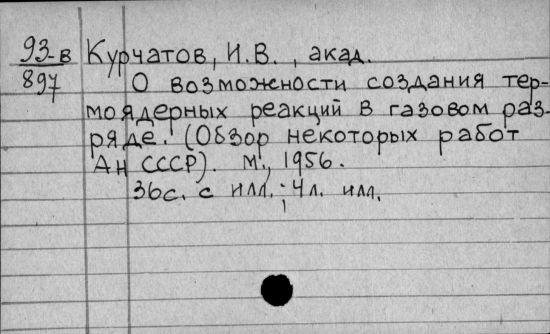 93-в Курчатов, И.В., акад.
897 О возможности создания тер-
моядерных реакций в газовом раз-
ряде. (Обзор некоторых работ
Ан СССР). М., 1956.
36с. с илл.; 4л. илл.